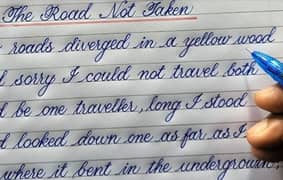 The Road Not Taken
roads diverged in a yellow wood
sorry I could not travel both
be one traveller, long I stood
looked down one as far as I
where it bent in the undergrowth,